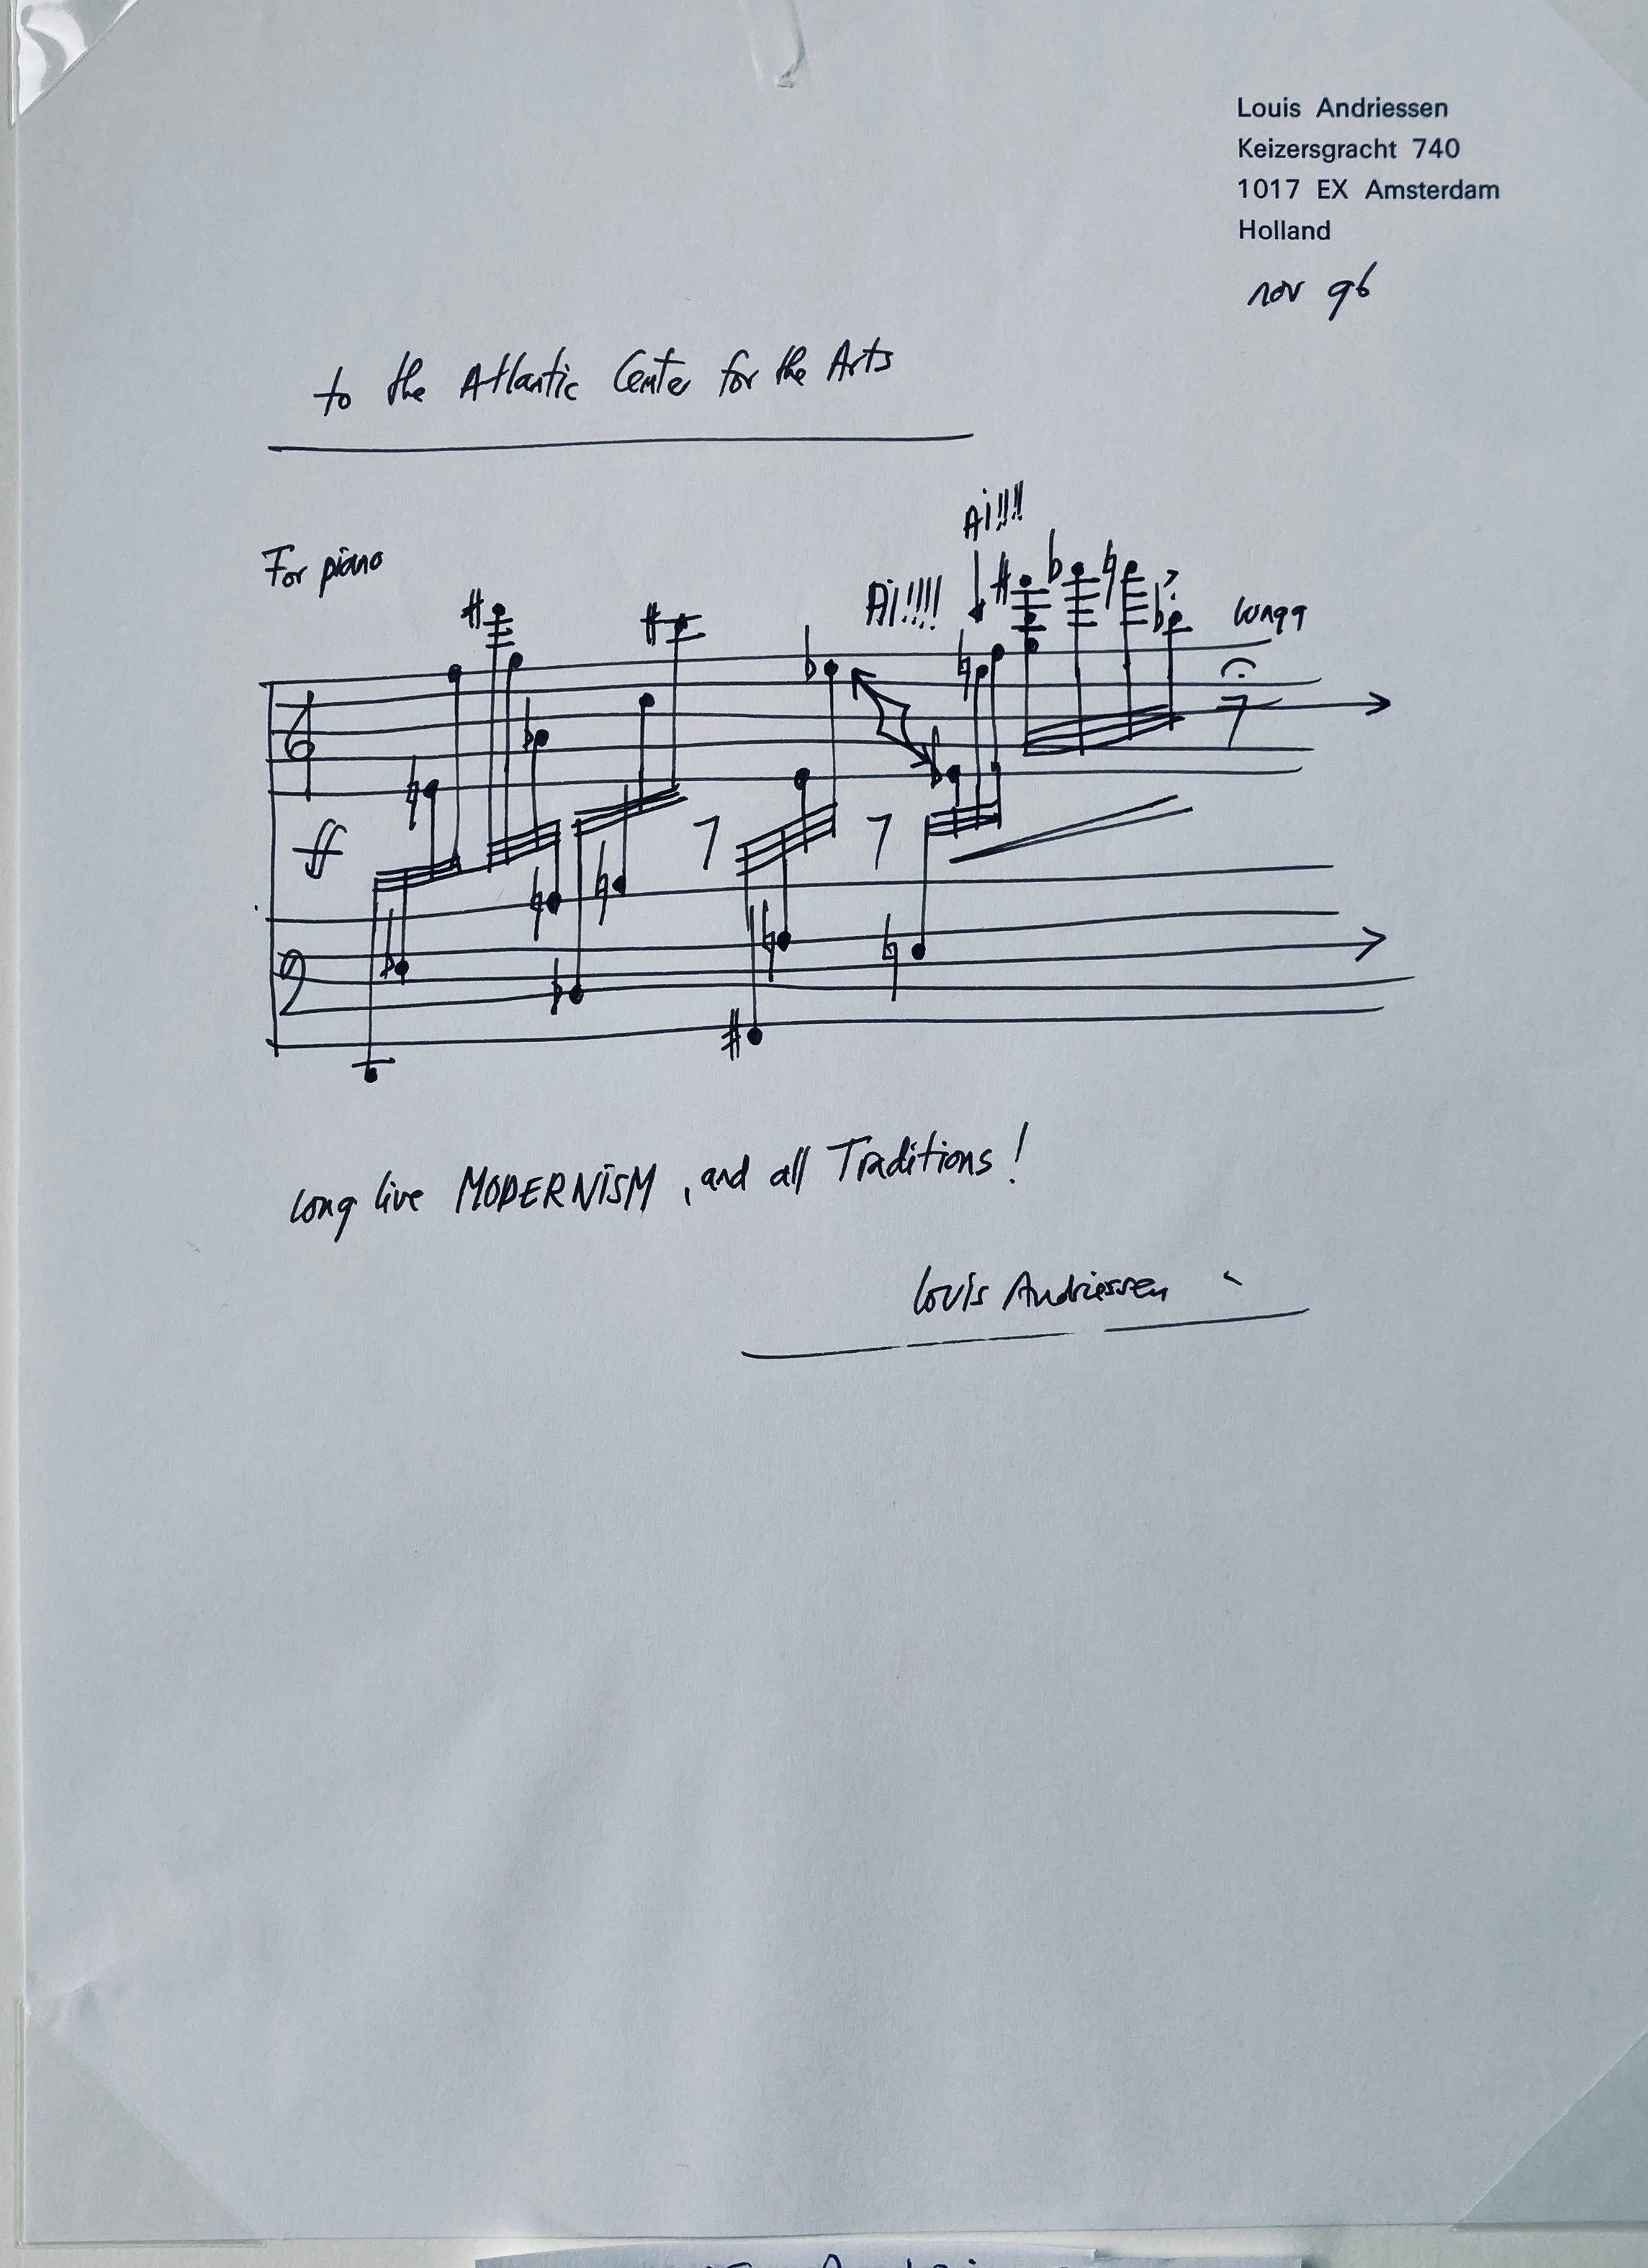 Louis Andriessen
Keizersgracht 740
1017 EX Amsterdam
Holland
nov 96
to the Atlantic Center for the Arts
For piano
Ai!!!!
Ai!!!!
lunga
ff
long live MODERNISM, and all Traditions!
Louis Andriessen